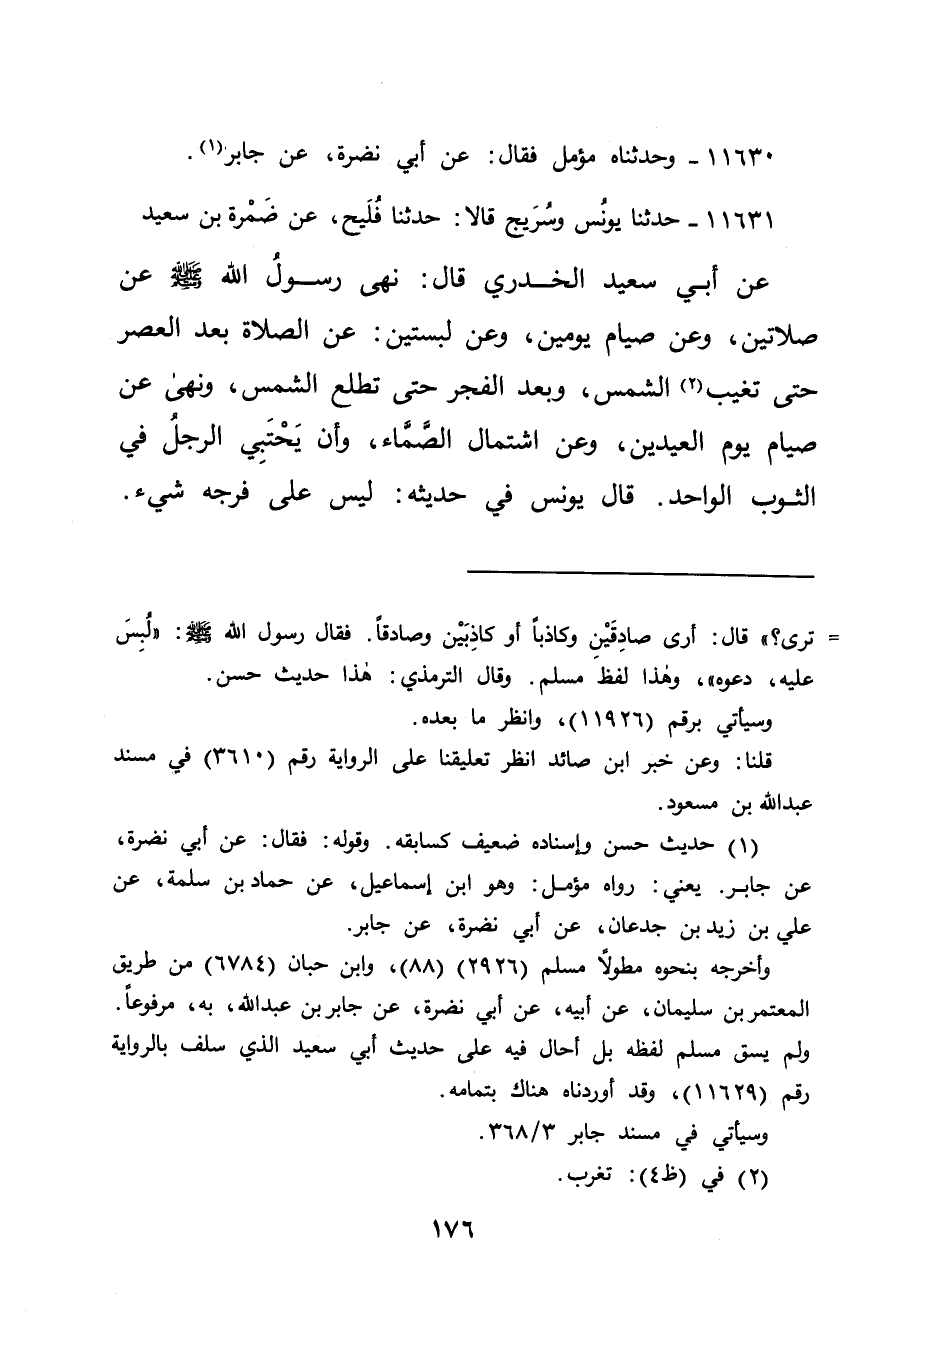 ١١٦٣٠ ـ وحدثناه مؤمل فقال: عن أبي نضرة، عن جابر(١).
١١٦٣١ ـ حدثنا يونُس وسُرَيج قالا: حدثنا فُلَيح، عن ضَمْرة بن سعيد
عن أبي سعيد الخدري قال: نهى رسولُ الله ﷺ عن
صلاتين، وعن صيام يومين، وعن لبستين: عن الصلاة بعد العصر
حتى تغيب(٢) الشمس، وبعد الفجر حتى تطلع الشمس، ونهىٰ عن
صيام يوم العيدين، وعن اشتمال الصَّمَّاء، وأن يَحْتَبِي الرجلُ في
الثوب الواحد. قال يونس في حديثه: ليس على فرجه شيء.
= ترى؟» قال: أرى صادِقَيْنِ وكاذباً أو كاذِبَيْنِ وصادقاً. فقال رسول الله ﷺ: «لُبِسَ
عليه، دعوه»، وهٰذا لفظ مسلم. وقال الترمذي: هٰذا حديث حسن.
وسيأتي برقم (١١٩٢٦)، وانظر ما بعده.
قلنا: وعن خبر ابن صائد انظر تعليقنا على الرواية رقم (٣٦١٠) في مسند
عبدالله بن مسعود.
(١) حديث حسن وإسناده ضعيف كسابقه. وقوله: فقال: عن أبي نضرة،
عن جابر. يعني: رواه مؤمل: وهو ابن إسماعيل، عن حماد بن سلمة، عن
علي بن زيد بن جدعان، عن أبي نضرة، عن جابر.
وأخرجه بنحوه مطولاً مسلم (٢٩٢٦) (٨٨)، وابن حبان (٦٧٨٤) من طريق
المعتمر بن سليمان، عن أبيه، عن أبي نضرة، عن جابر بن عبدالله، به، مرفوعاً.
ولم يسق مسلم لفظه بل أحال فيه على حديث أبي سعيد الذي سلف بالرواية
رقم (١١٦٢٩)، وقد أوردناه هناك بتمامه.
وسيأتي في مسند جابر ٣٦٨/٣.
(٢) في (ظ٤): تغرب.
١٧٦